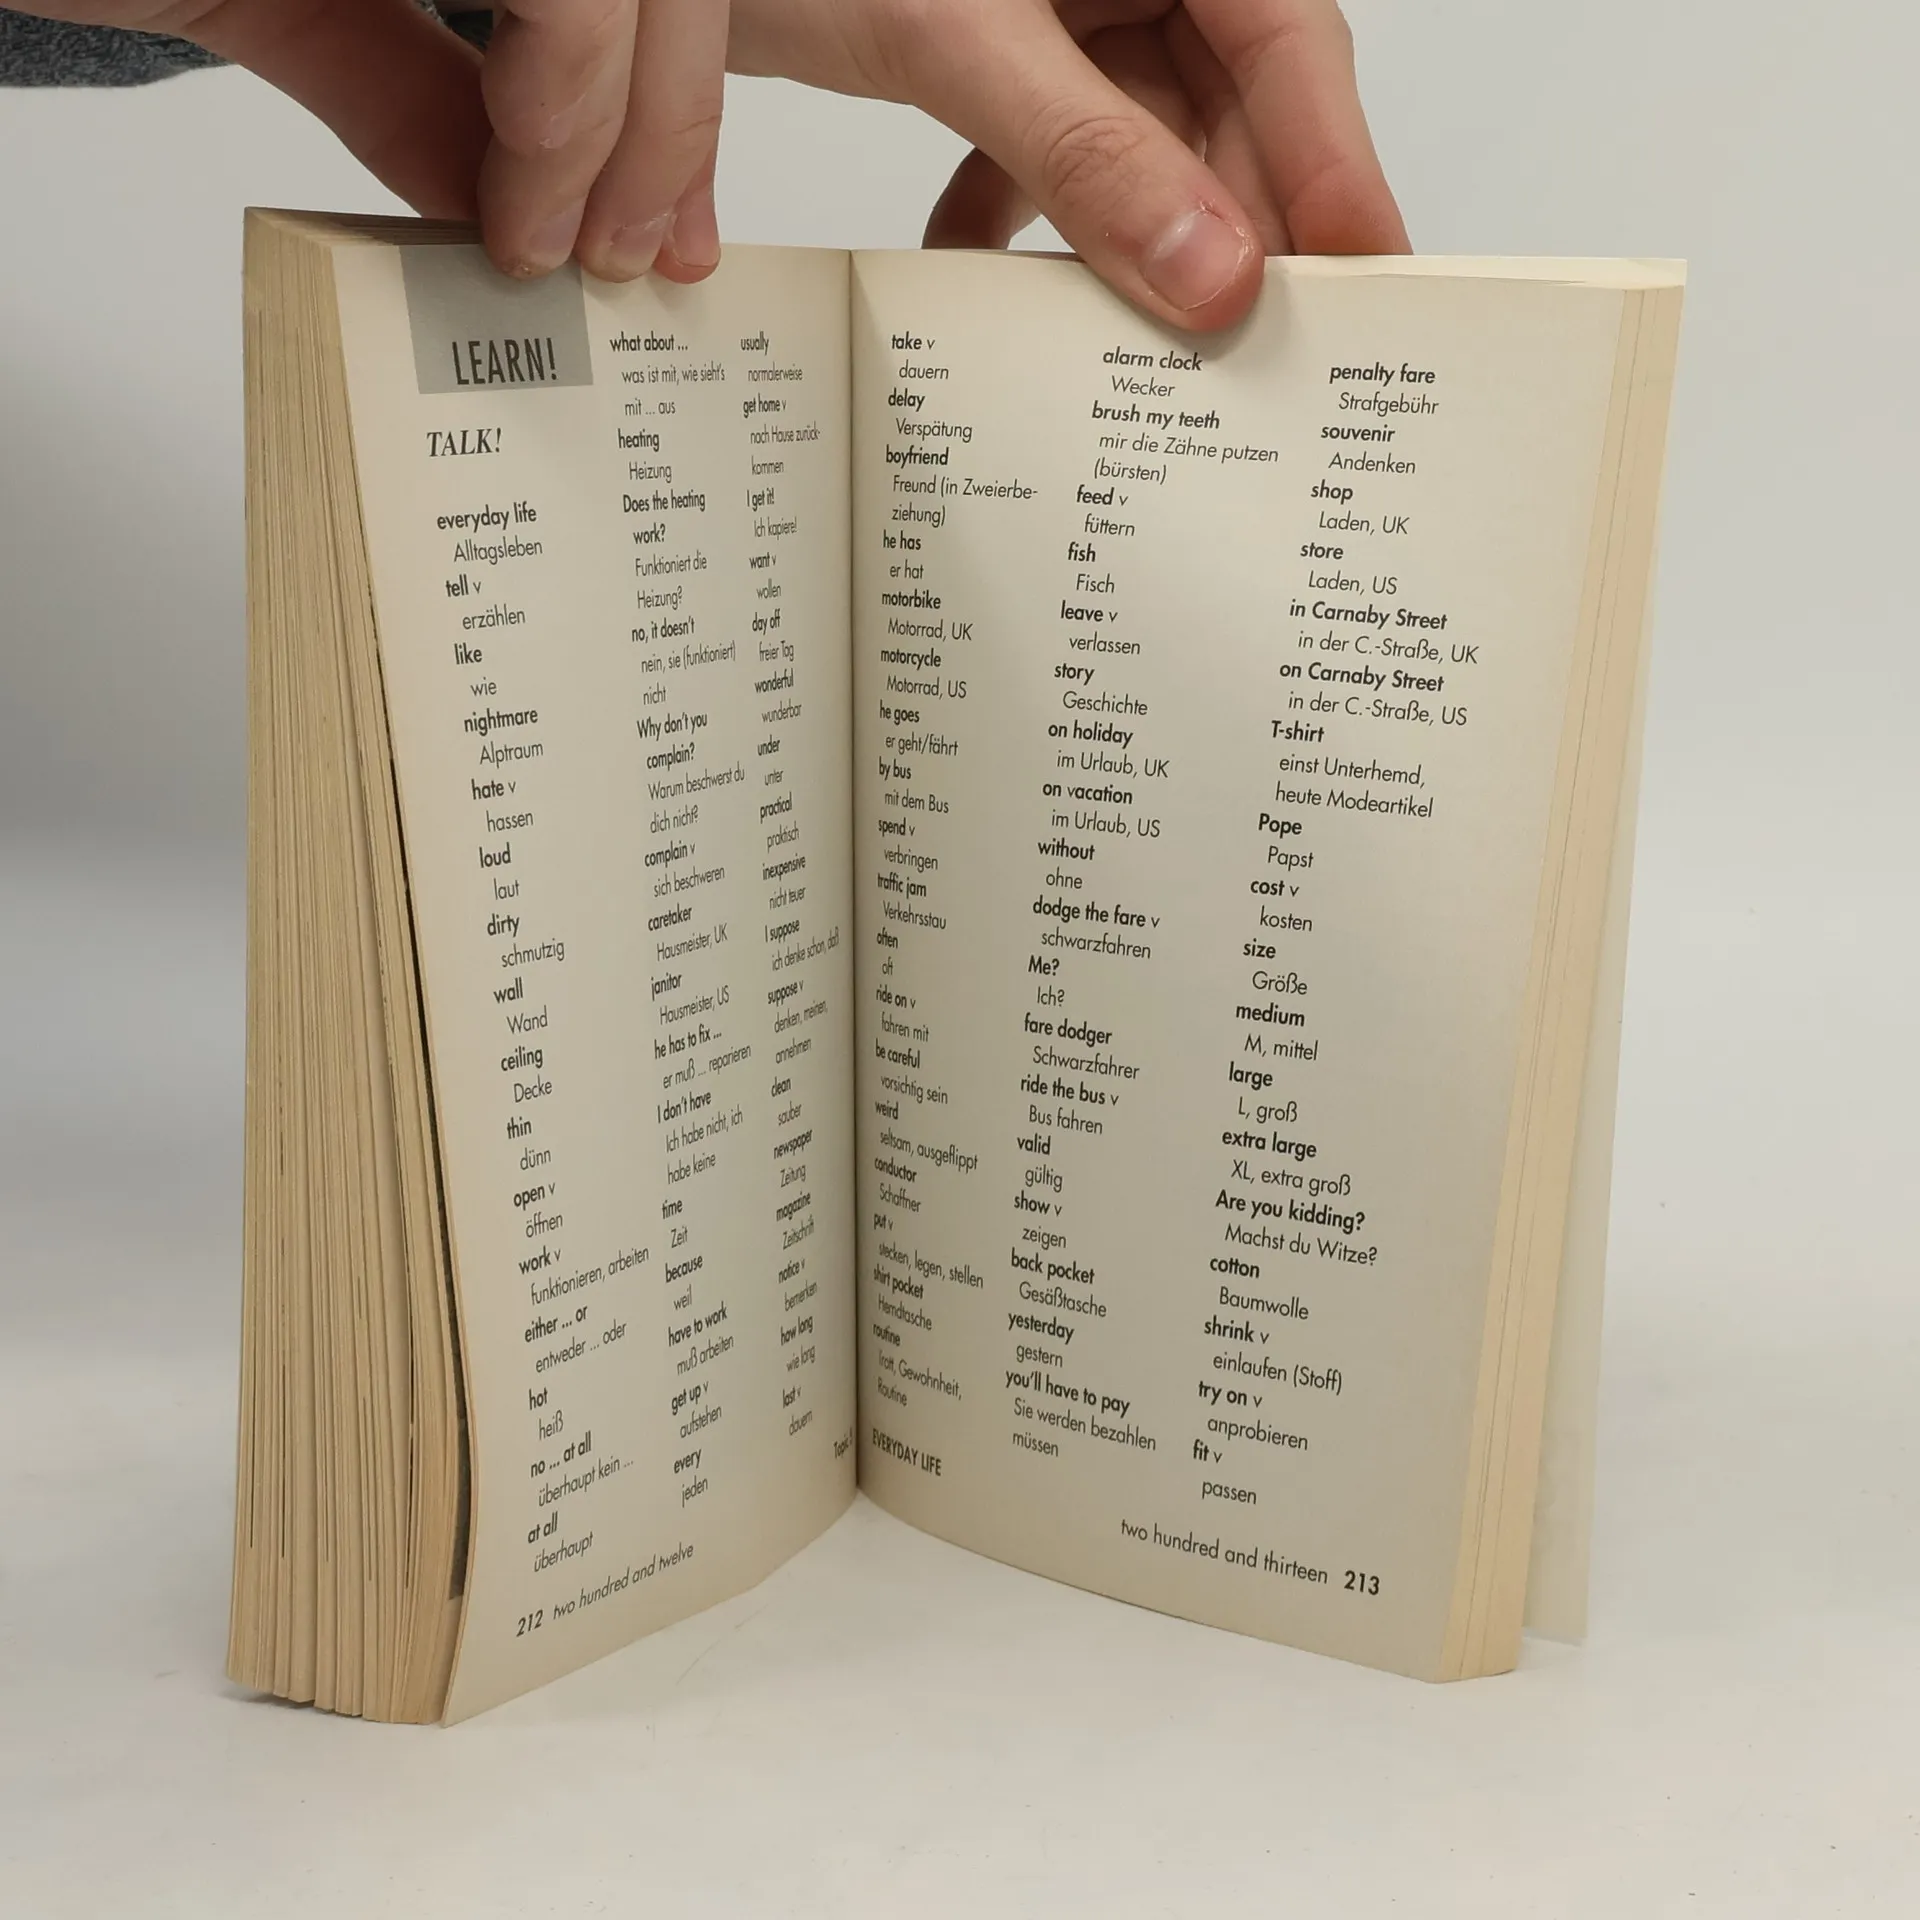 LEARN!
TALK!
everyday life
Alltagsleben
tell v
erzählen
like
wie
nightmare
Alptraum
hate v
hassen
loud
laut
dirty
schmutzig
wall
Wand
ceiling
Decke
thin
dünn
open v
öffnen
work v
funktionieren, arbeiten
either ... or
entweder ... oder
hot
heiß
no ... at all
überhaupt kein ...
at all
überhaupt
what about ...
was ist mit, wie sieht's
mit ... aus
heating
Heizung
Does the heating
work?
Funktioniert die
Heizung?
no, it doesn't
nein, sie (funktioniert)
nicht
Why don't you
complain?
Warum beschwerst du
dich nicht?
complain v
sich beschweren
caretaker
Hausmeister, UK
janitor
Hausmeister, US
he has to fix ...
er muß ... reparieren
I don't have
Ich habe nicht, ich
habe keine
time
Zeit
because
weil
have to work
muß arbeiten
get up v
aufstehen
every
jeden
usually
normalerweise
get home v
nach Hause zurück-
kommen
I get it!
Ich kapiere!
want v
wollen
day off
freier Tag
wonderful
wunderbar
under
unter
practical
praktisch
inexpensive
nicht teuer
I suppose
ich denke schon, daß
suppose v
denken, meinen,
annehmen
clean
sauber
newspaper
Zeitung
magazine
Zeitschrift
notice v
bemerken
how long
wie lang
last v
dauern
212 two hundred and twelve
Topic
take v
dauern
delay
Verspätung
boyfriend
Freund (in Zweierbe-
ziehung)
he has
er hat
motorbike
Motorrad, UK
motorcycle
Motorrad, US
he goes
er geht/fährt
by bus
mit dem Bus
spend v
verbringen
traffic jam
Verkehrsstau
often
oft
ride on v
fahren mit
be careful
vorsichtig sein
weird
seltsam, ausgeflippt
conductor
Schaffner
put v
stecken, legen, stellen
shirt pocket
Hemdtasche
routine
Trott, Gewohnheit,
Routine
EVERYDAY LIFE
alarm clock
Wecker
brush my teeth
mir die Zähne putzen
(bürsten)
feed v
füttern
fish
Fisch
leave v
verlassen
story
Geschichte
on holiday
im Urlaub, UK
on vacation
im Urlaub, US
without
ohne
dodge the fare v
schwarzfahren
Me?
Ich?
fare dodger
Schwarzfahrer
ride the bus v
Bus fahren
valid
gültig
show v
zeigen
back pocket
Gesäßtasche
yesterday
gestern
you'll have to pay
Sie werden bezahlen
müssen
penalty fare
Strafgebühr
souvenir
Andenken
shop
Laden, UK
store
Laden, US
in Carnaby Street
in der C.-Straße, UK
on Carnaby Street
in der C.-Straße, US
T-shirt
einst Unterhemd,
heute Modeartikel
Pope
Papst
cost v
kosten
size
Größe
medium
M, mittel
large
L, groß
extra large
XL, extra groß
Are you kidding?
Machst du Witze?
cotton
Baumwolle
shrink v
einlaufen (Stoff)
try on v
anprobieren
fit v
passen
two hundred and thirteen 213